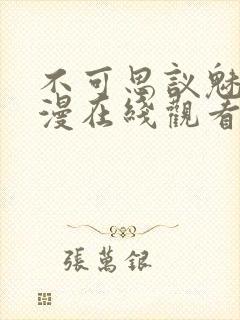 不可思议魅
漫在綫觀看
張萬銀